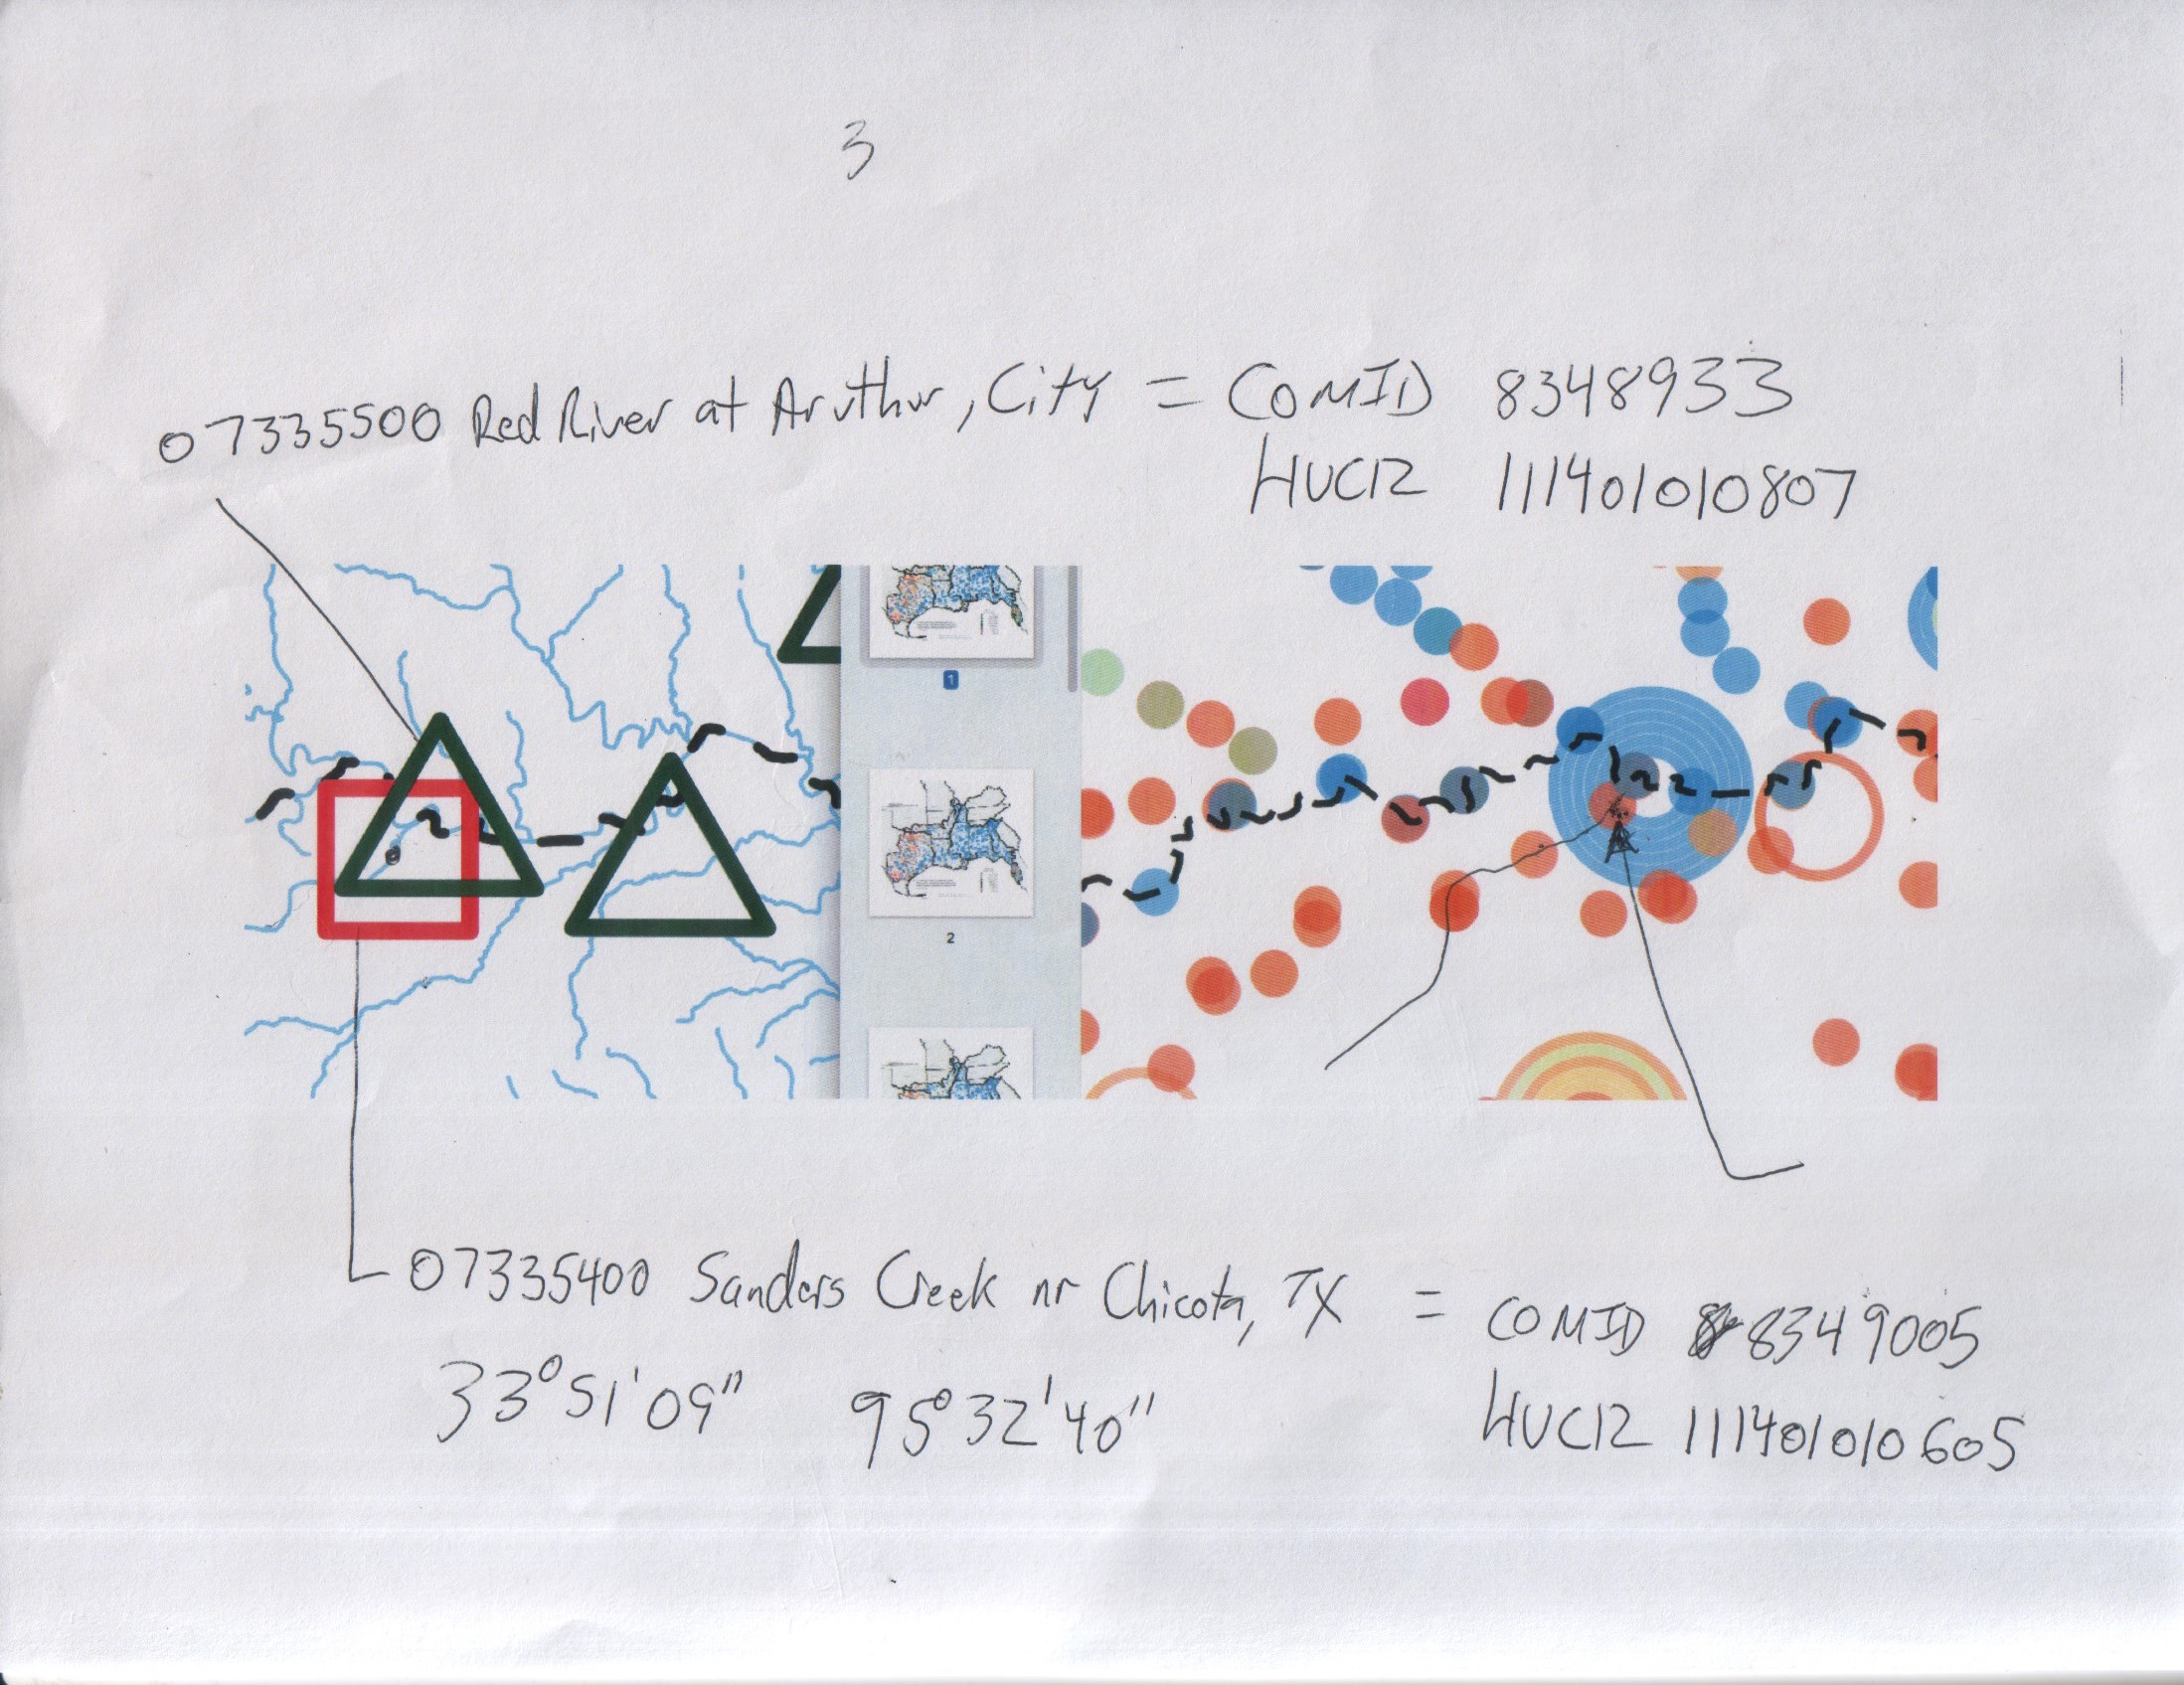 3
07335500 Red River at Aruthur, City = COMID 8348933
HUC12 111401010807
1
2
07335400 Sanders Creek nr Chicota, TX = COMID 8349005
33°51'09" 95°32'40" HUC12 111401010605